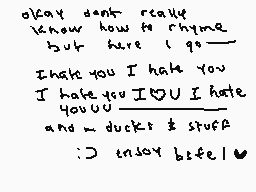 okay dont really
know how to rhyme
but here i go —
I hate you I hate you
I hate you I ♡ U I hate
youuu
and m ducks & stuff
:D enjoy bsfel ♥